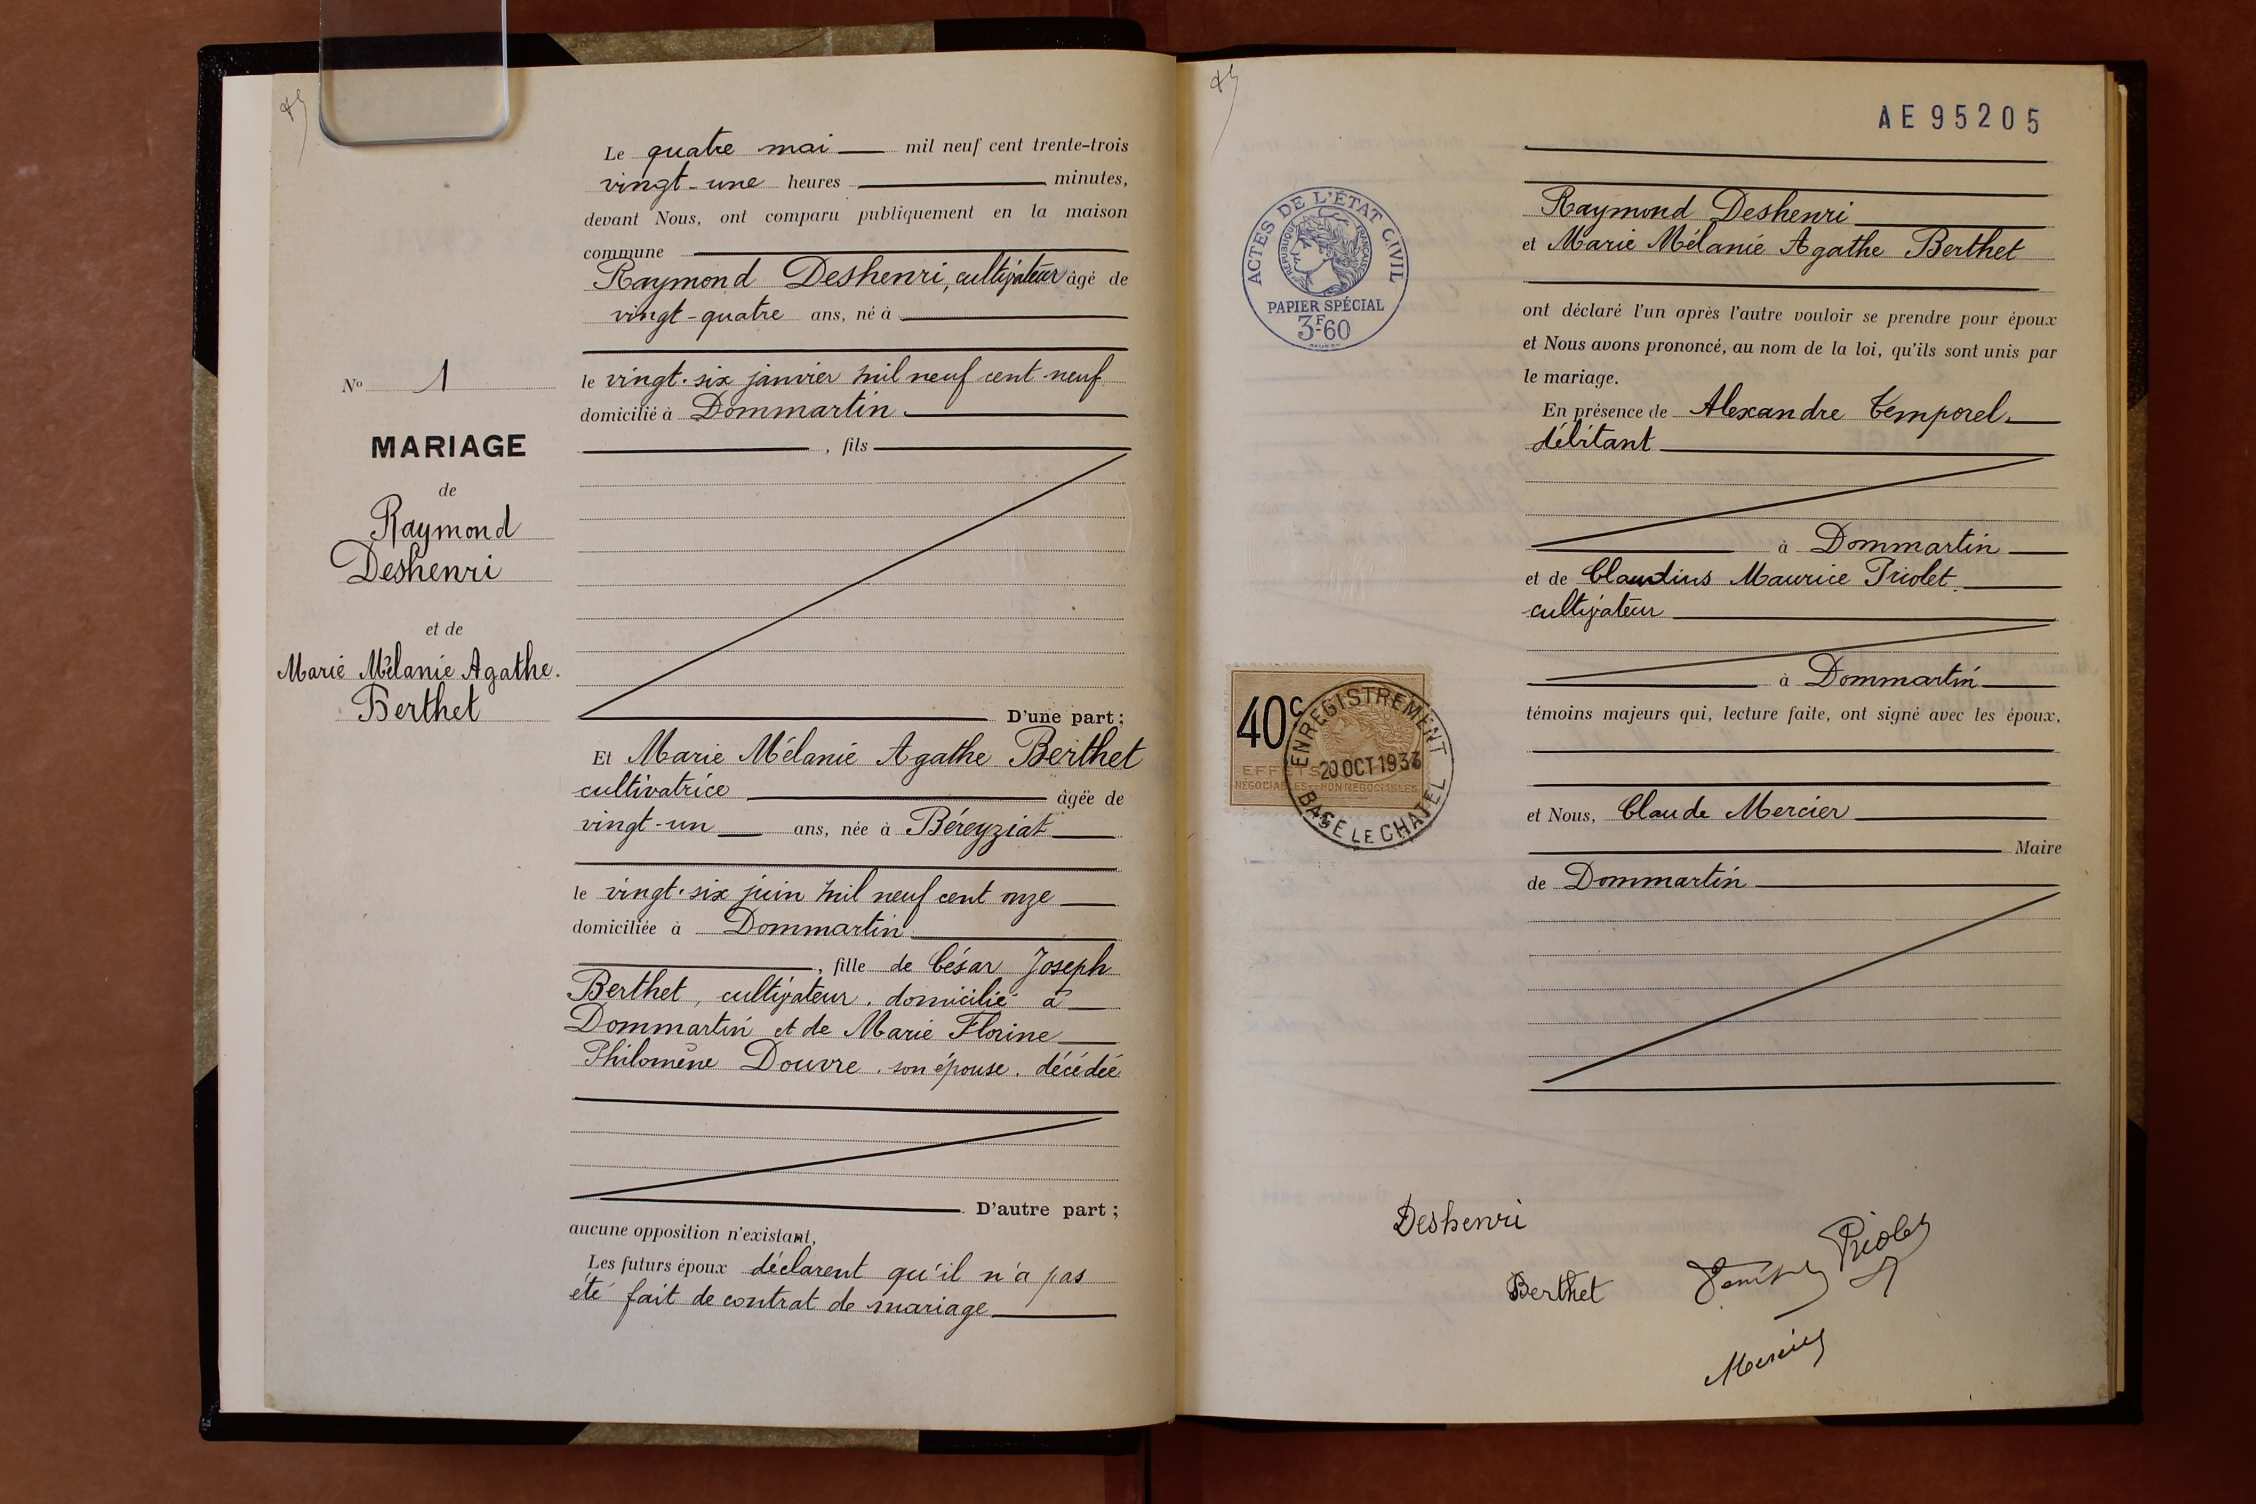 Le quatre mai mil neuf cent trente-trois
vingt-une heures minutes,
devant Nous, ont comparu publiquement en la maison
commune
Raymond Deshenri, cultivateur âgé de
vingt-quatre ans, né à
le vingt-six janvier mil neuf cent neuf
domicilié à Dommartin
, fils
D'une part;
Et Marie Mélanie Agathe Berthet
cultivatrice âgée de
vingt-un ans, née à Béreyziat
le vingt-six juin mil neuf cent onze
domiciliée à Dommartin
, fille de César Joseph
Berthet, cultivateur, domicilié à
Dommartin et de Marie Florine
Philomène Douvre, son épouse, décédée
D'autre part;
aucune opposition n'existant,
Les futurs époux déclarent qu'il n'a pas
été fait de contrat de mariage
No 1
MARIAGE
de
Raymond
Deshenri
et de
Marie Mélanie Agathe
Berthet
AE 95205
ACTES DE L'ÉTAT CIVIL
RÉPUBLIQUE FRANÇAISE
PAPIER SPÉCIAL
3F60
Raymond Deshenri
et Marie Mélanie Agathe Berthet
ont déclaré l'un après l'autre vouloir se prendre pour époux
et Nous avons prononcé, au nom de la loi, qu'ils sont unis par
le mariage.
En présence de Alexandre Temporel
débitant
à Dommartin
et de Claudius Maurice Priolet
cultivateur
à Dommartin
témoins majeurs qui, lecture faite, ont signé avec les époux,
40c
EFFETS
NÉGOCIABLES - NON NÉGOCIABLES
ENREGISTREMENT
20 OCT 1933
BAGÉ LE CHATEL
et Nous, Claude Mercier
Maire
de Dommartin
Deshenri
Berthet
Priolet
Mercier